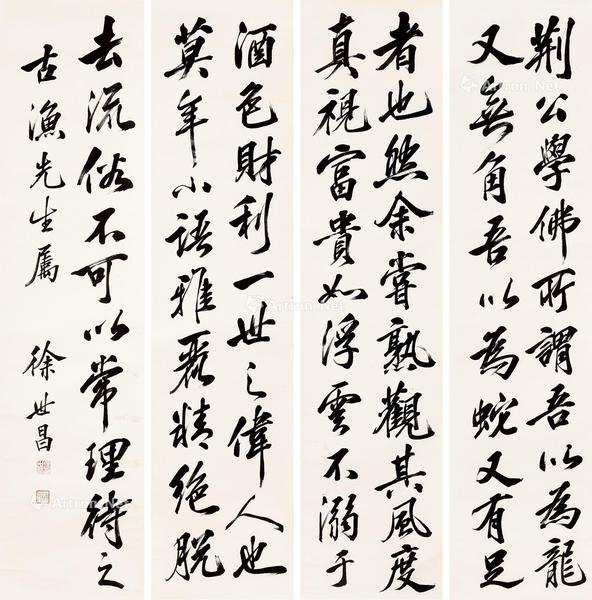 荊公學佛所謂吾以為龍
又無角吾以為蛇又有足
者也然余嘗熟觀其風度
真視富貴如浮雲不溺于
酒色財利一世之偉人也
莫年小語雅麗精絕脫
去流俗不可以常理待之
古漁先生屬
徐世昌
Artron.Net
Artron.Net
Artron.Net
Artron.Net
Artron.Net